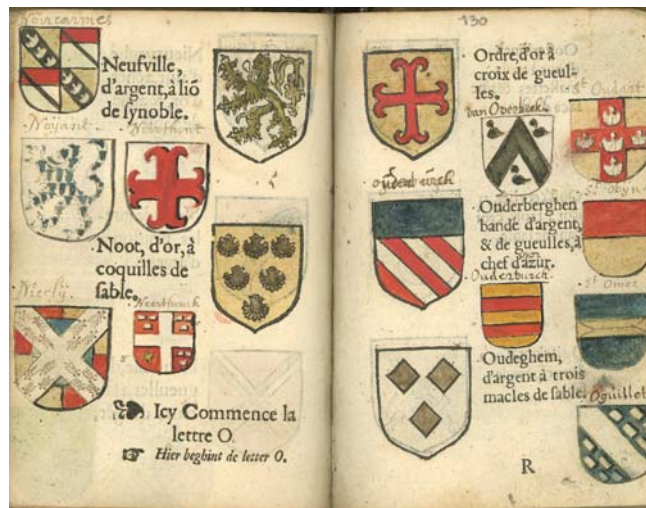 Noircarmes
Neufville,
d'argent, à lió
de synoble.
Noyant
Noot, d'or, à
coquilles de
sable.
Icy Commence la
lettre O.
Hier beghint de letter O.
130
Ordre, d'or à
croix de gueul-
les.
van Overbeek
St Oudart
Onderberghen
bandé d'argent,
& de gueulles, à
chef d'azur.
Ouderburch
St Omer
Oudeghem,
d'argent à trois
macles de sable.
Oguillot
R